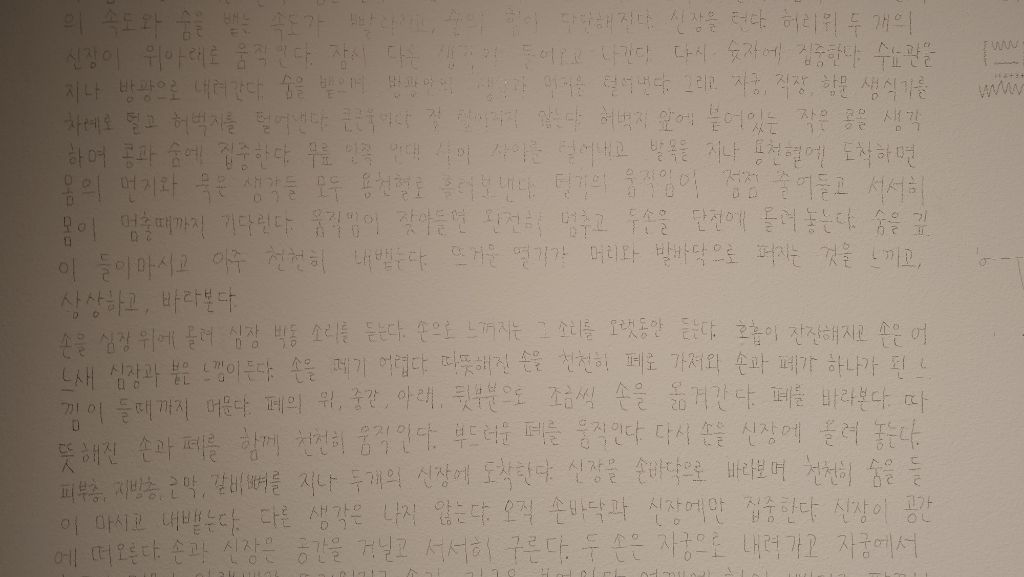 의 속도와 숨을 뱉는 속도가 빨라지고, 숨의 힘이 단단해진다. 신장을 턴다. 허리위 두 개의
신장이 위아래로 움직인다. 잠시 다른 생각이 들어오고 나간다. 다시 숫자에 집중한다. 수뇨관을
지나 방광으로 내려간다. 숨을 뱉으며 방광안의 생각과 먼지를 털어낸다. 그리고 자궁, 직장, 항문 생식기를
차례로 털고 허벅지를 털어낸다. 큰근육이라 잘 털어지지 않는다. 허벅지 앞에 붙어있는 작은 콩을 생각
하며 콩과 숨에 집중한다. 무릎 털어내고 발목을 지나 용천혈에 도착하면
몸의 먼지와 묵은 생각들 모두 용천혈로 흘려보낸다. 털기의 움직임이 점점 줄어들고 서서히
몸이 멈출때까지 기다린다. 움직임이 잦아들면 완전히 멈추고 두손을 단전에 올려놓는다. 숨을 깊
이 들이마시고 아주 천천히 내뱉는다. 뜨거운 열기가 머리와 발바닥으로 퍼지는 것을 느끼고,
상상하고, 바라본다.
손을 심장 위에 올려 심장 박동 소리를 듣는다. 손으로 느껴지는 그 소리를 오랫동안 듣는다. 호흡이 잔잔해지고 손은 어
느새 심장과 붙은 느낌이든다. 손을 떼기 어렵다. 따뜻해진 손을 천천히 폐로 가져와 손과 폐가 하나가 된 느
낌이 들때까지 머문다. 폐의 위, 중간, 아래, 뒷부분으로 조금씩 손을 옮겨간다. 폐를 바라본다. 따
뜻해진 손과 폐를 함께 천천히 움직인다. 부드러운 폐를 움직인다. 다시 손을 신장에 올려 놓는다.
피부층, 지방층, 근막, 갈비뼈를 지나 두개의 신장에 도착한다. 신장을 손바닥으로 바라보며 천천히 숨을 들
이 마시고 내뱉는다. 다른 생각은 나지 않는다. 오직 손바닥과 신장에만 집중한다. 신장이 공간
에 떠오른다. 손과 신장은 공간을 거닐고 서서히 구른다. 두 손은 자궁으로 내려가고 자궁에서